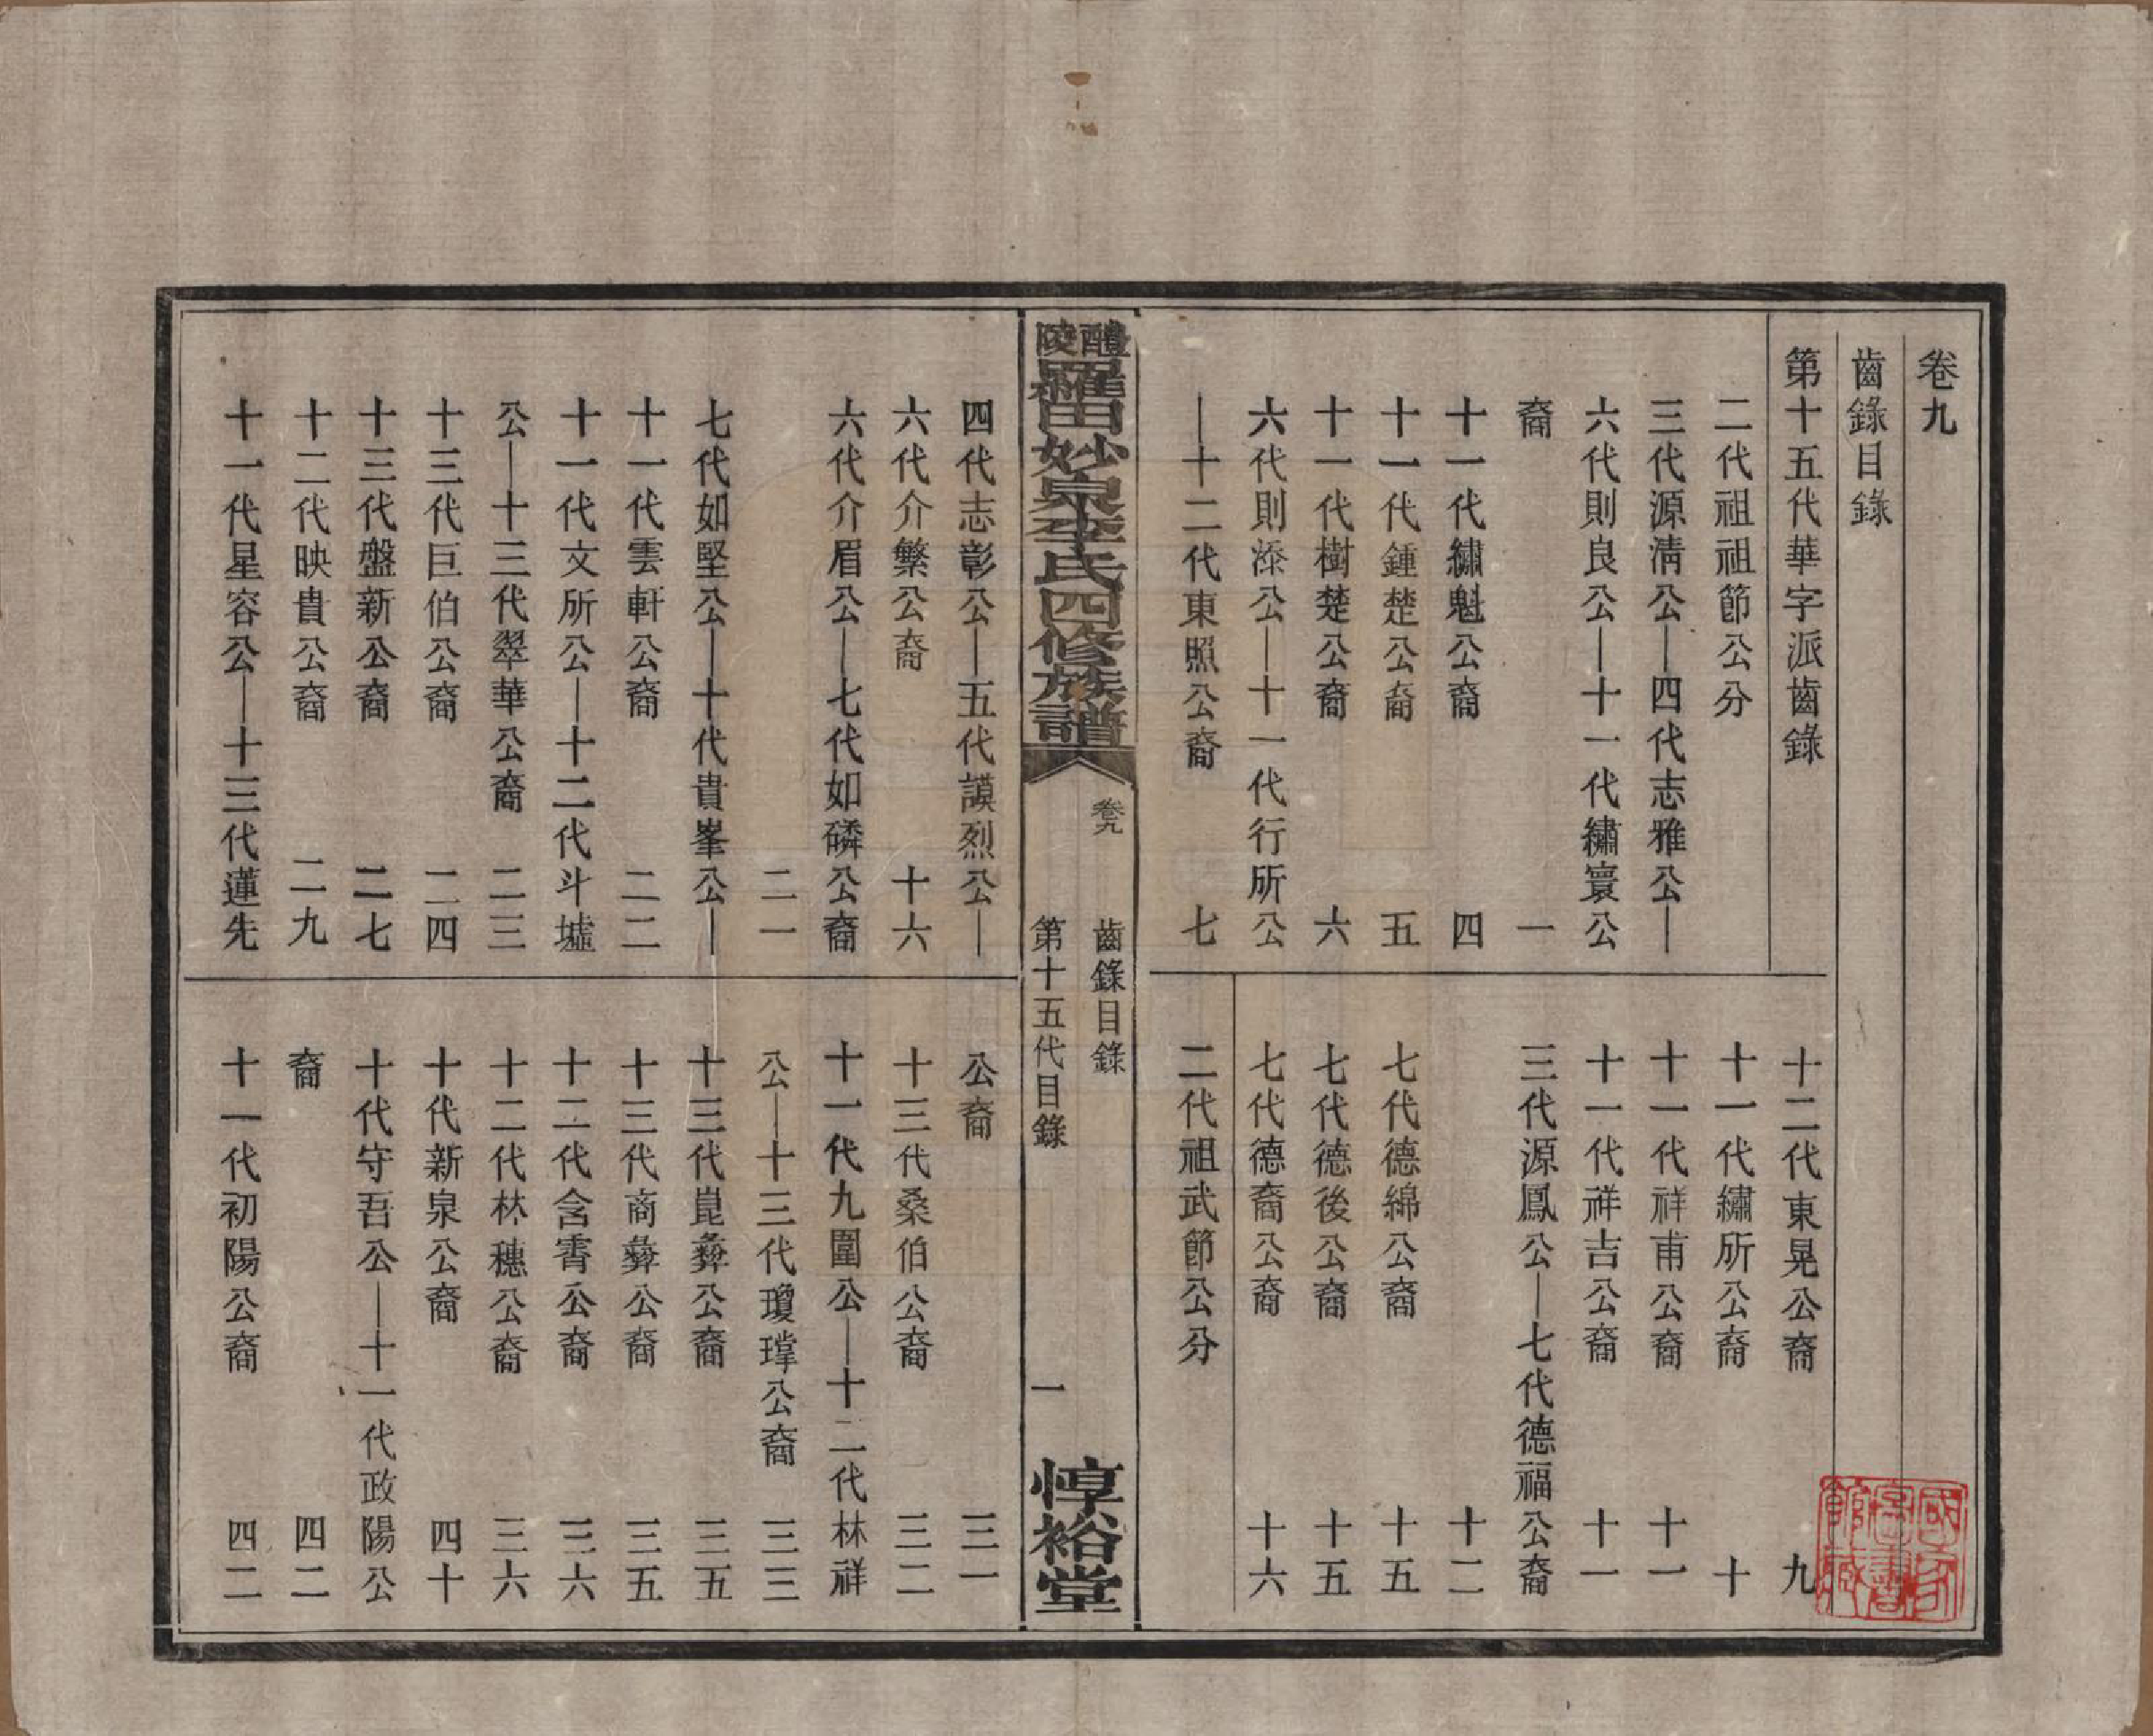 卷九
齒錄目錄
第十五代華字派齒錄
二代祖祖節公分
三代源清公—四代志雅公—
六代則良公—十一代繡寰公
裔 一
十一代繡魁公裔 四
十一代鍾楚公裔 五
十一代樹楚公裔 六
六代則漆公—十一代行所公
—十二代東照公裔 七
十二代東晃公裔 九
十一代繡所公裔 十
十一代祥甫公裔 十一
十一代祥吉公裔 十一
三代源鳳公—七代德福公裔
十二
七代德綿公裔 十五
七代德後公裔 十五
七代德裔公裔 十六
二代祖武節公分
醴陵羅田妙泉李氏四修族譜
卷九 齒錄目錄
第十五代目錄 一
惇裕堂
四代志彰公—五代謨烈公—
六代介繁公裔 十六
六代介眉公—七代如磷公裔
二一
七代如堅公—十代貴峯公—
十一代雲軒公裔 二二
十一代文所公—十二代斗墟
公—十三代翠華公裔 二三
十三代巨伯公裔 二四
十三代盤新公裔 二七
十二代映貴公裔 二九
十一代星容公—十三代蓮先
公裔 三一
十三代桑伯公裔 三二
十一代九圍公—十二代林祥
公—十三代瓊㻶公裔 三三
十三代崑彝公裔 三五
十三代商彝公裔 三五
十二代含霄公裔 三六
十二代林穗公裔 三六
十代新泉公裔 四十
十代守吾公—十一代政陽公
裔 四二
十一代初陽公裔 四二
國家圖書館藏